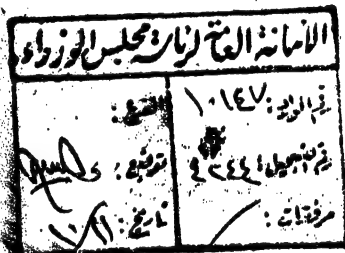 الأمانة العامة لرئاسة مجلس الوزراء
رقم الوارد: ١٠١٤٧
رقم التسجيل: ٤٢٤٤
مرفقات: /
توقيع:
تاريخ: ١٠/٢١